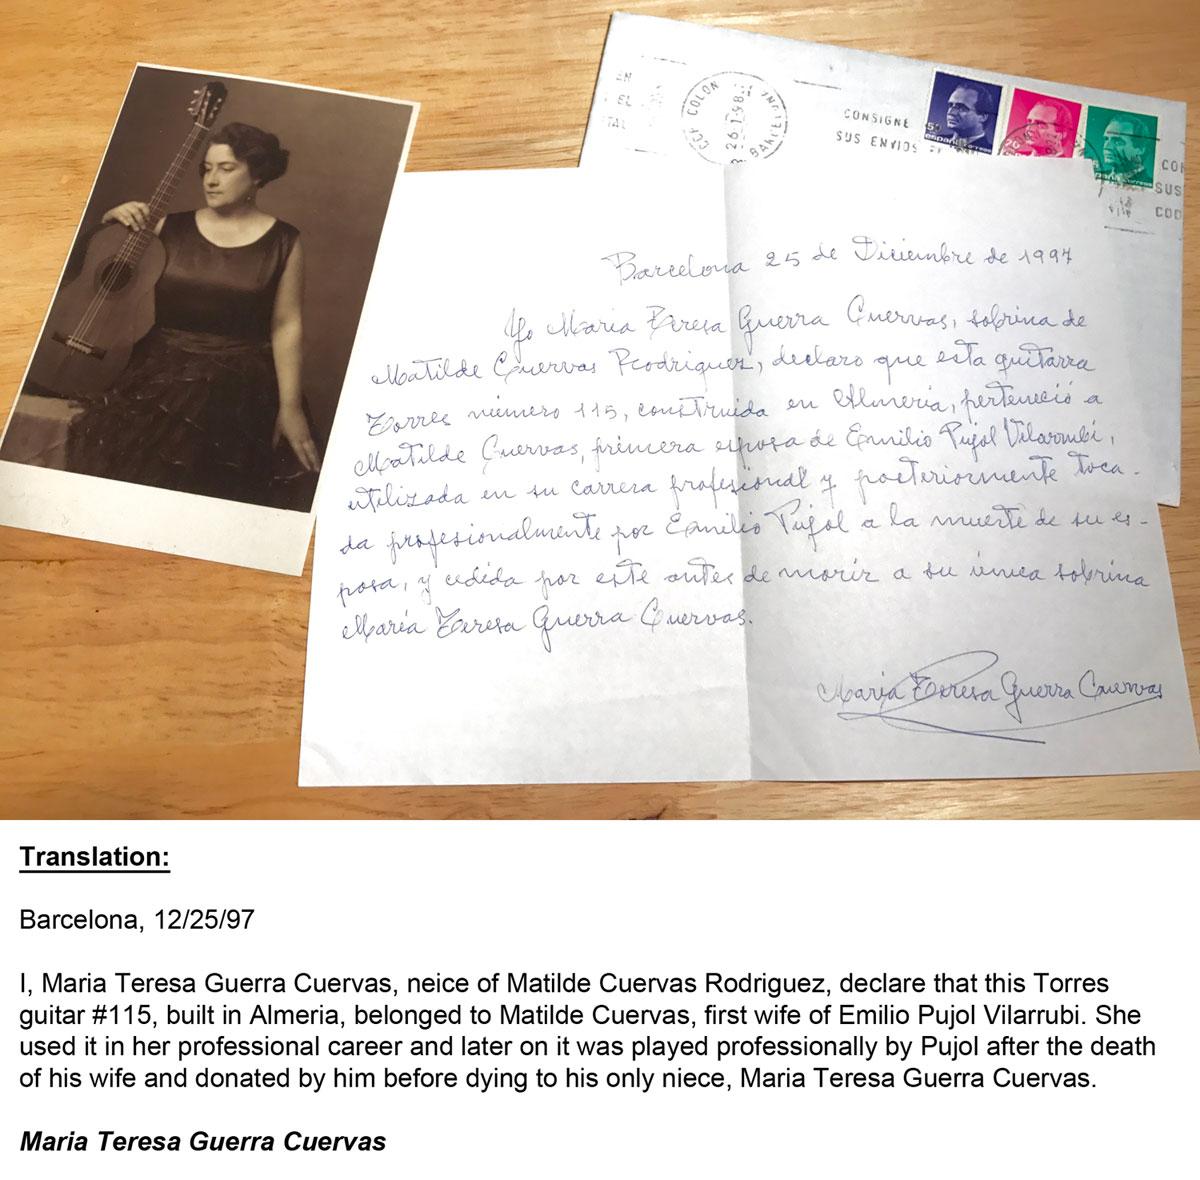 EN
EL
TAL
CCP COLON
26.1.98
BARCELONA
CONSIGNE
SUS ENVIOS
CON
SUS
COD
Barcelona 25 de Diciembre de 1997
Yo Maria Teresa Guerra Cuervas, sobrina de
Matilde Cuervas Rodriguez, declaro que esta guitarra
Torres número 115, construida en Almeria, perteneció a
Matilde Cuervas, primera esposa de Emilio Pujol Vilarrubí,
utilizada en su carrera profesional y posteriormente toca-
da profesionalmente por Emilio Pujol a la muerte de su es-
posa, y cedida por este antes de morir a su única sobrina
María Teresa Guerra Cuervas.
Maria Teresa Guerra Cuervas
Translation:
Barcelona, 12/25/97
I, Maria Teresa Guerra Cuervas, neice of Matilde Cuervas Rodriguez, declare that this Torres
guitar #115, built in Almeria, belonged to Matilde Cuervas, first wife of Emilio Pujol Vilarrubi. She
used it in her professional career and later on it was played professionally by Pujol after the death
of his wife and donated by him before dying to his only niece, Maria Teresa Guerra Cuervas.
Maria Teresa Guerra Cuervas